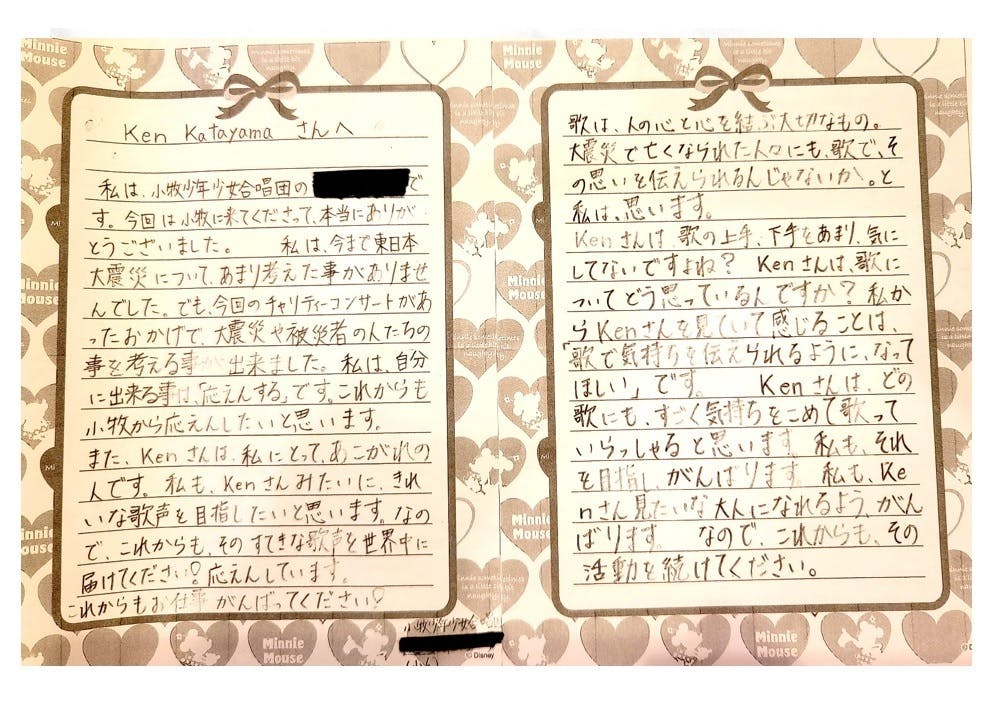 Ken Katayama さんへ
私は、小牧少年少女合唱団の
で
す。今回は小牧に来てくださって、本当にありが
とうございました。 私は、今まで東日本
大震災について、あまり考えた事がありませ
んでした。でも、今回のチャリティーコンサートがあ
ったおかげで、大震災や被災者の人たちの
事を考える事が出来ました。私は、自分
に出来る事は、「応えんする」です。これからも
小牧から応えんしたいと思います。
また、Kenさんは、私にとって、あこがれの
人です。私も、Kenさんみたいに、きれ
いな歌声を目指したいと思います。なの
で、これからも、そのすてきな歌声を世界中に
届けてください!応えんしています。
これからもお仕事がんばってください!
小牧少年少女合
© Disney
歌は、人の心と心を結ぶ大切なもの。
大震災で亡くなられた人々にも、歌で、そ
の思いを伝えられるんじゃないか。と
私は、思います。
Kenさんは、歌の上手、下手をあまり、気に
してないですよね? Kenさんは、歌に
ついてどう思っているんですか?私か
らKenさんを見ていて感じることは、
「歌で気持ちを伝えられるように、なって
ほしい」です。 Kenさんは、どの
歌にも、すごく気持ちをこめて歌って
いらっしゃると思います。私も、それ
を目指し、がんばります。私も、Ke
nさん見たいな大人になれるよう、がん
ばります。 なので、これからも、その
活動を続けてください。
Minnie
Mouse